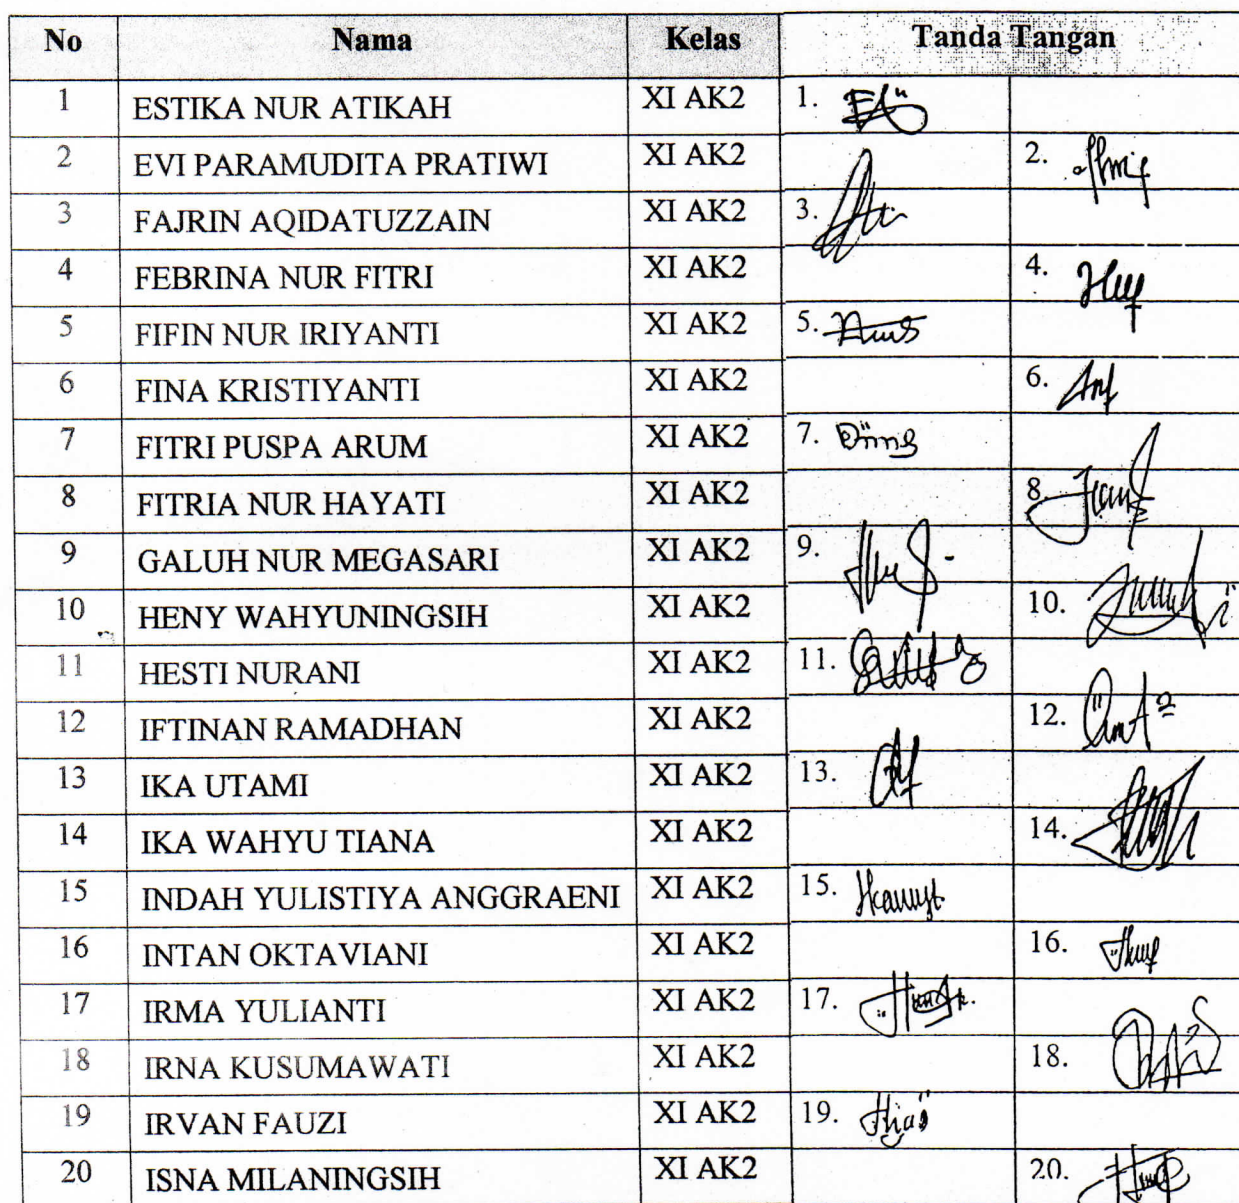 No Nama Kelas Tanda Tangan
1 ESTIKA NUR ATIKAH XI AK2 1.
2 EVI PARAMUDITA PRATIWI XI AK2 2.
3 FAJRIN AQIDATUZZAIN XI AK2 3.
4 FEBRINA NUR FITRI XI AK2 4.
5 FIFIN NUR IRIYANTI XI AK2 5.
6 FINA KRISTIYANTI XI AK2 6.
7 FITRI PUSPA ARUM XI AK2 7.
8 FITRIA NUR HAYATI XI AK2 8.
9 GALUH NUR MEGASARI XI AK2 9.
10 HENY WAHYUNINGSIH XI AK2 10.
11 HESTI NURANI XI AK2 11.
12 IFTINAN RAMADHAN XI AK2 12.
13 IKA UTAMI XI AK2 13.
14 IKA WAHYU TIANA XI AK2 14.
15 INDAH YULISTIYA ANGGRAENI XI AK2 15.
16 INTAN OKTAVIANI XI AK2 16.
17 IRMA YULIANTI XI AK2 17.
18 IRNA KUSUMAWATI XI AK2 18.
19 IRVAN FAUZI XI AK2 19.
20 ISNA MILANINGSIH XI AK2 20.